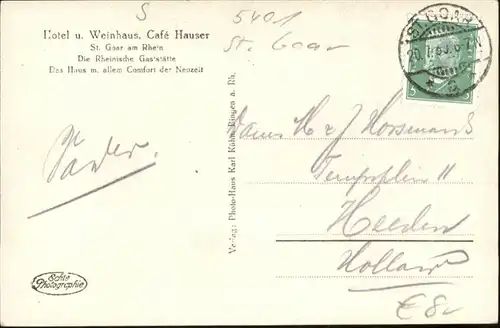 S
5401
St. Goar
Hotel u. Weinhaus, Café Hauser
St. Goar am Rhein
Die Rheinische Gaststätte
Das Haus m. allem Comfort der Neuzeit
ST. GOAR
5
Verlag: Photo-Haus Karl Kühn, Bingen a. Rh.
Echte
Photographie
Dames H & J Horsmans
11
Heerlen
Holland
€ 8-